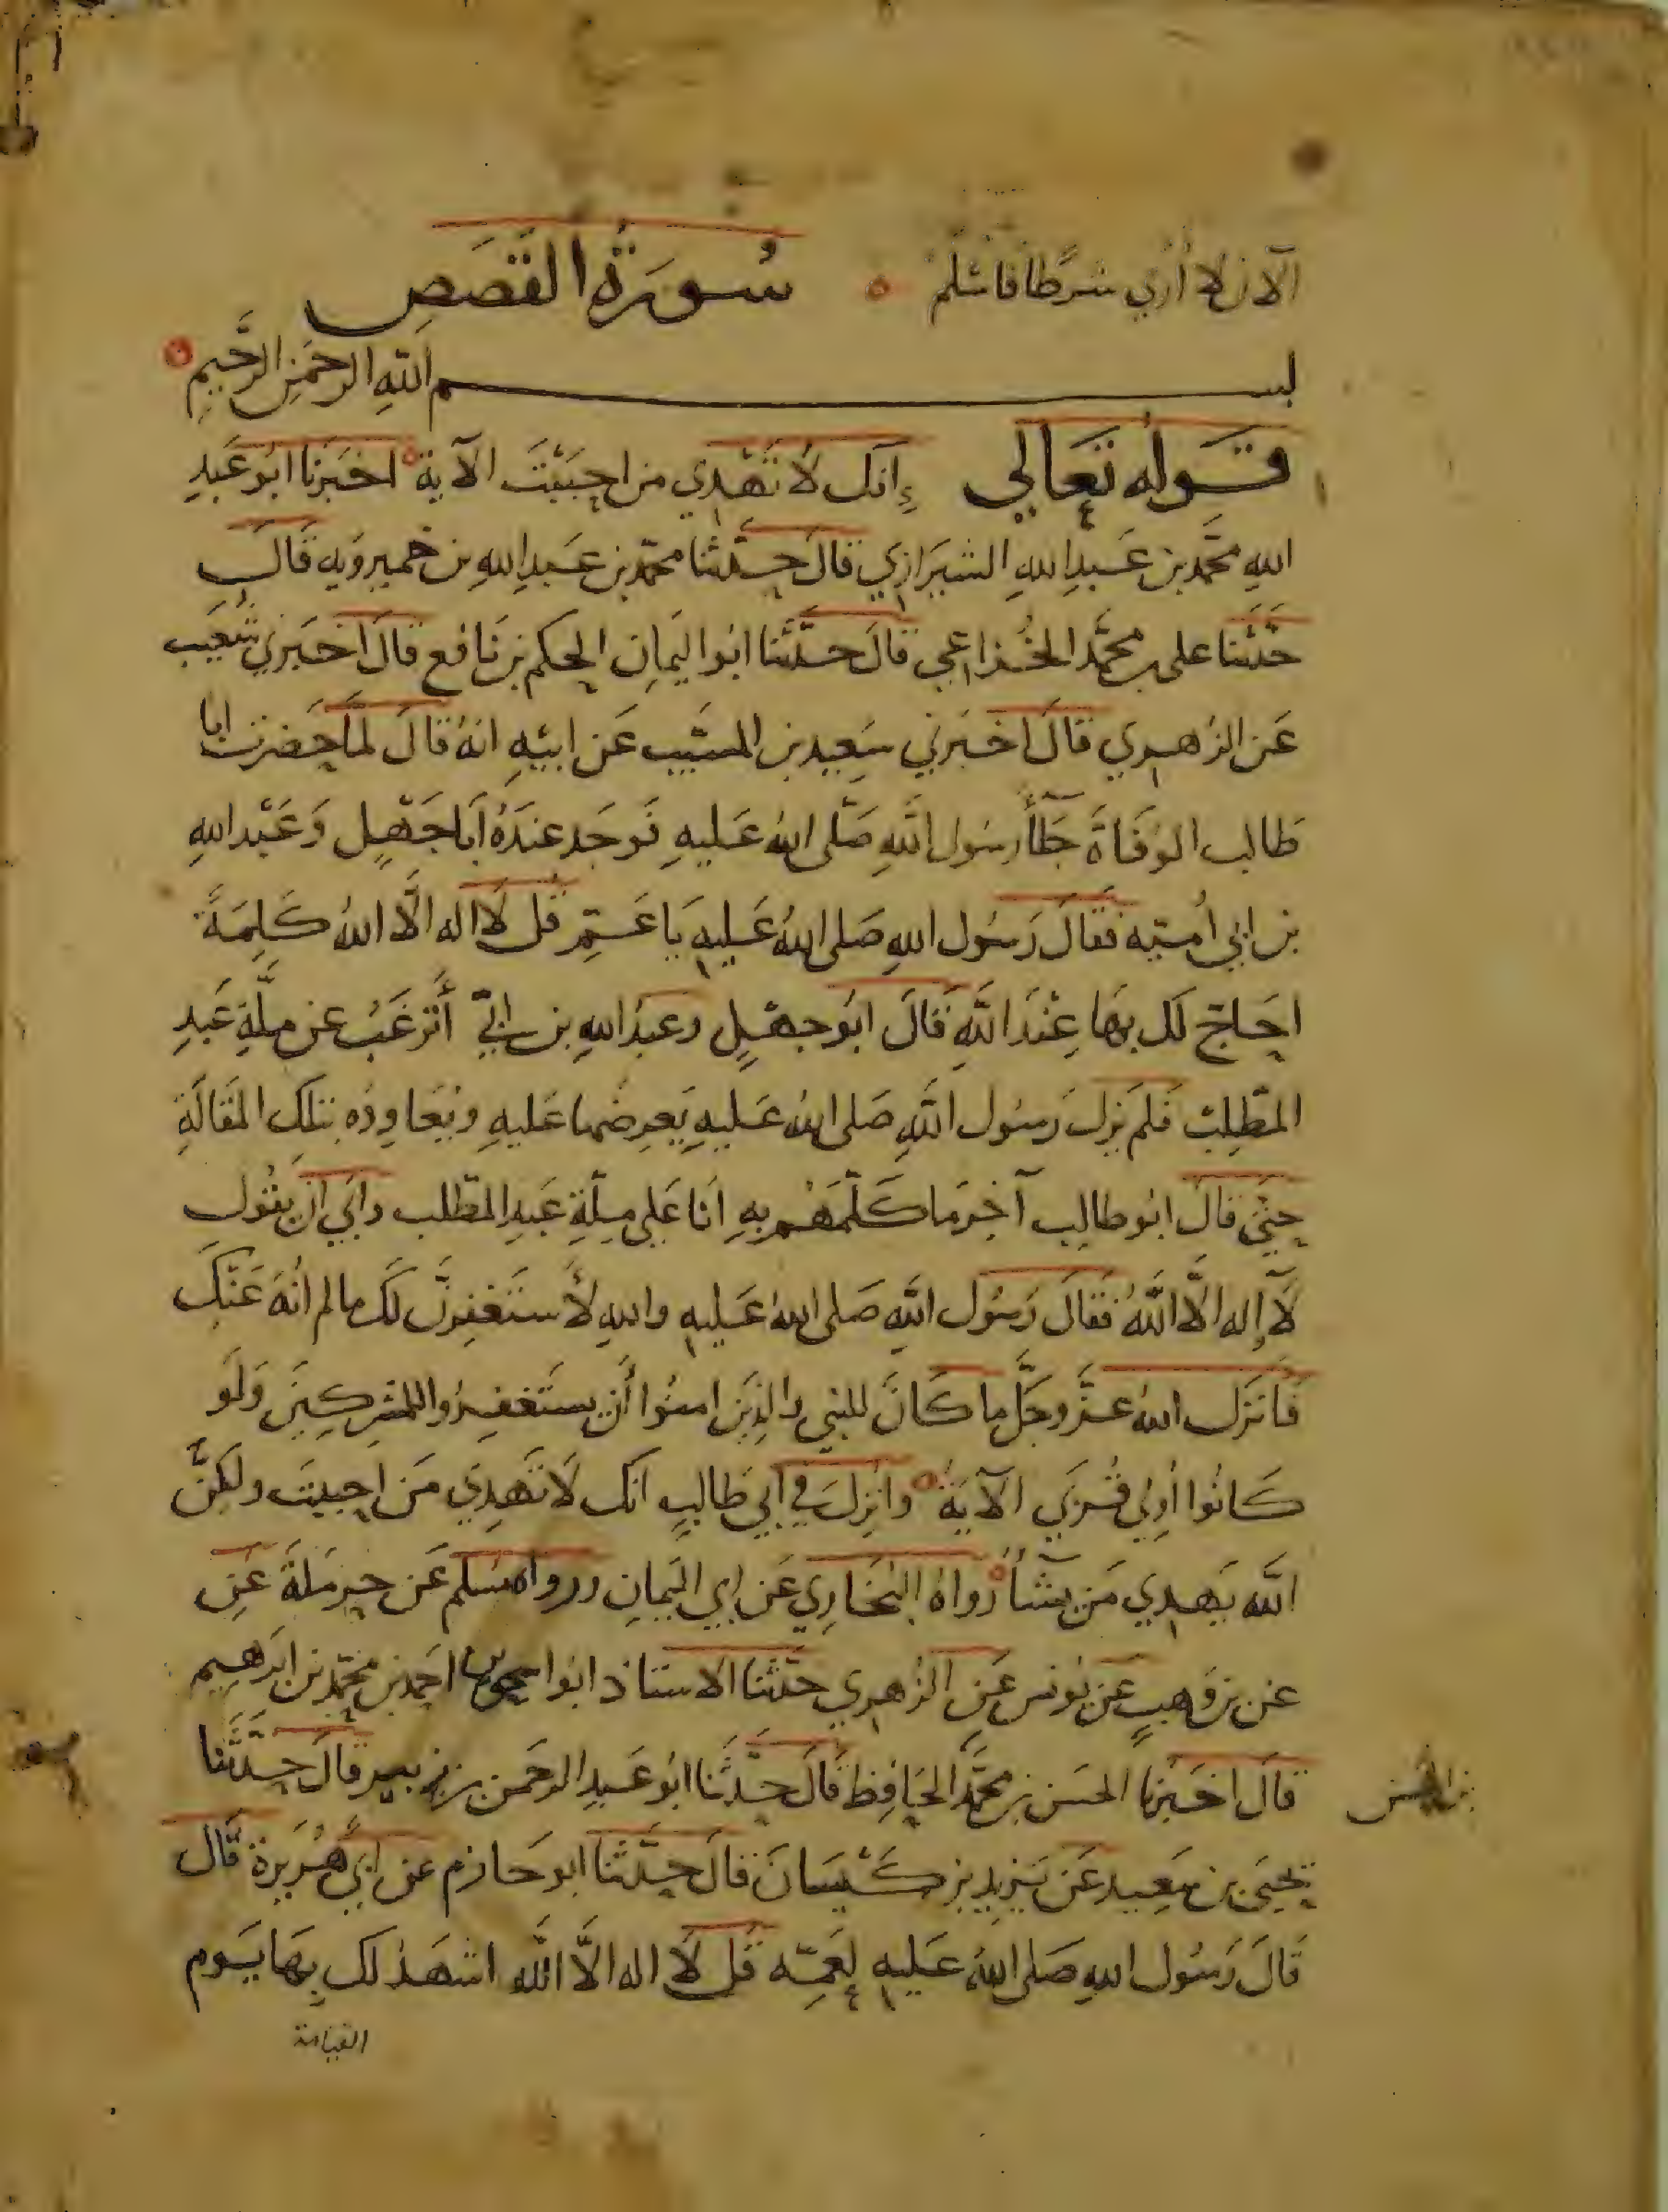 الآن لا أرى شرطا فأسلم ه سُورَةُ القَصَصِ
بسم اللهِ الرحمنِ الرَّحيمِ
قَولُه تَعَالى إنك لا تَهْدِي من احبَبْتَ الآية اخبَرنا ابُو عَبدِ
اللهِ محَّمد بن عَبدِ اللهِ الشيرَازي قالَ حدّثنا محمّد بن عَبدِ اللهِ بن خميرويه قالَ
حَدّثنا على بن محمَّد الخُزاعي قالَ حدّثَنا ابُو اليَمانِ الحكم بن نَافع قالَ اخبَرني شُعَيب
عَن الزُهري قالَ اخبَرني سَعِيد بن المسَيّب عَن ابيْهِ انهُ قالَ لمَّا حَضرت ابا
طالب الوَفَاةَ جَآءَ رسُول اللهِ صَلّى اللهُ عَليهِ فوَجَد عندَهُ أبَا جَهْلٍ وَعَبْد اللهِ
بن ابي أُميّه فقالَ رَسُول اللهِ صَلى اللهُ عَليهِ يَا عَمِّ قُل لَا اله الَّا اللهُ كَلِمَةً
احَاجّ لك بهَا عِنْدَ اللَّهِ فَقالَ ابُو جهْلٍ وعبدُ اللهِ بن ابيّ أترغَبُ عن ملَّةِ عَبدِ
المطّلِبْ فَلَم يزل رَسُول اللَّهِ صَلى اللهُ عَليهِ يَعرِضُها عَليهِ ويُعَاودُه بتلك المقَالَةِ
حتىَّ قالَ ابُو طالِب آخِرَ مَا كَلّمَهُم بِهِ انَا عَلى مِلّةِ عَبدِ المطّلب وابَى ان يقُول
لَا إله الَّا اللَّهُ فَقالَ رَسُول اللهِ صَلى اللهُ عَليهِ واللهِ لأَستَغفِرنَّ لَك ما لم انْهَ عَنْكَ
فَانزَل اللهُ عزَّ وجَلَّ ما كَانَ للنبي والذِينَ امنُوا أَن يستَغفِرُوا للمُشرِكينَ وَلَو
كَانُوا أولي قُربَى الآيَة وانزِلَ في أبي طَالبٍ انك لَا تَهدِي مَن احببتَ ولكِنَّ
اللَّه يَهدِي مَن يشَآءُ رواهُ البُخَارِي عَن ابي اليَمانِ ورواه مُسلم عَن حرمَلةَ عَنِ
عن بن وَهبٍ عَن يُونس عَن الزُهري حَدّثنا الاستاذ ابُو اسحق احمَد بن محمّد بن ابرَهِيم
قالَ اخبَرنا الحسَن بن محمَّد الحَافِظ قَالَ حدّثَنا ابُو عَبدِ الرحمَن بن قالَ حدّثنا
بن الحسن
يحيَى بن سَعِيد عَن يَزيد بن كَيْسَانَ قالَ حدّثنا ابو حَازم عن ابي هُرَيرة قالَ
قَالَ رَسُول اللهِ صَلى اللهُ عَليهِ لعَمّهِ قُل لَا اله الَّا اللَّه اشهَد لك بِهَا يَوم
القيامة